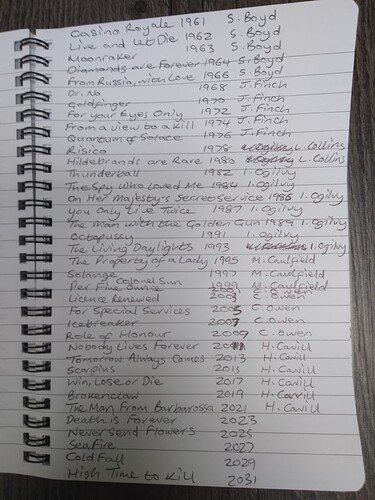 Casino Royale 1961 S. Boyd
Live and let Die 1962 S. Boyd
Moonraker 1963 S. Boyd
Diamonds are Forever 1964 S. Boyd
From Russia, with Love 1966 S. Boyd
Dr. No 1968 J. Finch
Goldfinger 1970 J. Finch
For your Eyes Only 1972 J. Finch
From a view to a kill 1974 J. Finch
Quantum of Solace 1976 J. Finch
Risico 1978 L. Collins
Hildebrands are Rare 1980 L. Collins
Thunderball 1982 I. Ogilvy
The Spy who Loved Me 1984 I. Ogilvy
On Her Majesty's Secret Service 1986 I. Ogilvy
You Only Live Twice 1987 I. Ogilvy
The Man with the Golden Gun 1989 I. Ogilvy
Octopussy 1991 I. Ogilvy
The Living Daylights 1993 I. Ogilvy
The Property of a Lady 1995 M. Caulfield
Solange 1997 M. Caulfield
Per Fine Ounce Colonel Sun 1999 M. Caulfield
Licence Renewed 2003 C. Owen
For Special Services 2005 C. Owen
Icebreaker 2007 C. Owen
Role of Honour 2009 C. Owen
Nobody Lives Forever 2011 H. Cavill
Tomorrow Always Comes 2013 H. Cavill
Scorpius 2015 H. Cavill
Win, Lose or Die 2017 H. Cavill
Brokenclaw 2019 H. Cavill
The Man From Barbarossa 2021 H. Cavill
Death is Forever 2023
Never Send Flowers 2025
SeaFire 2027
Cold Fall 2029
High Time to Kill 2031